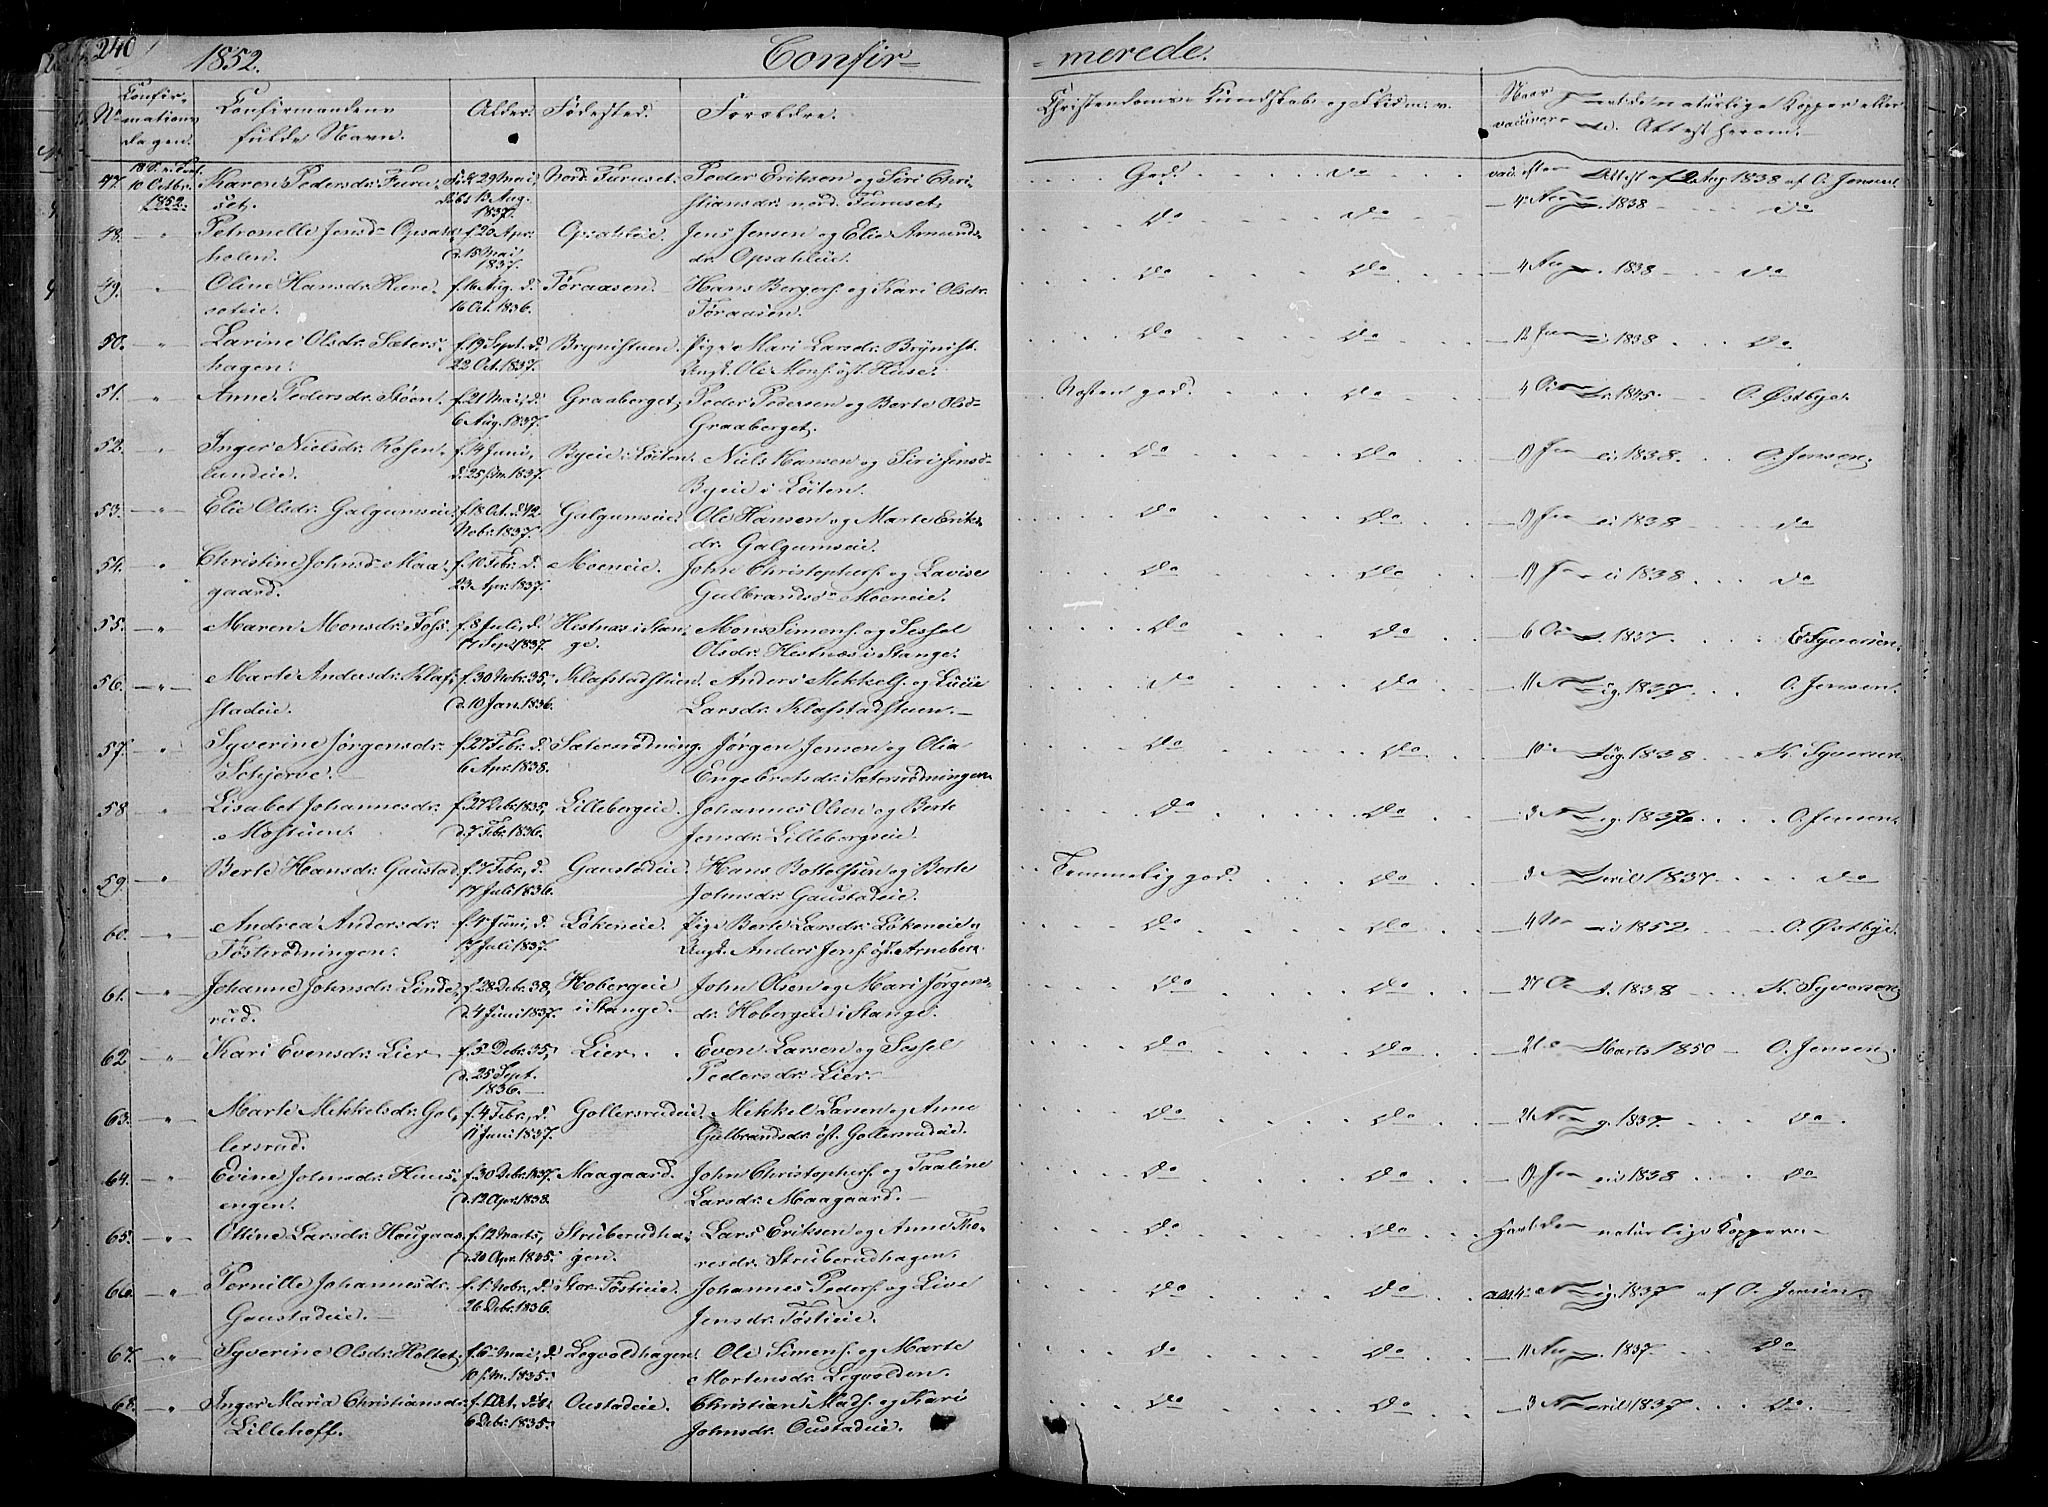 240
1852.
Confir-
-merede.
No
Confir-
mations
dagen.
Confirmandens
fulde Navn.
Alder.
Fødested.
Forældre.
Christendoms-Kundskab og Flid m. v.
Naar
vaccinere
naturlige Kopper eller
Attest herom.
47.
10 Octbr.
1852.
Karen Pedersdr. Furu-
set.
f. 29 Mai,
døbt 13 Aug.
1837.
Nord. Furuset.
Peder Eriksen og Siri Chri-
stiansdr. nord. Furuset.
God. Do
Aug 1838 af O. Jensen
48. "
Petronelle Jensdr. Opsal-
holen.
f. 20 Apr.
d. 15 Mai
1837.
Opsahleie.
Jens Jensen og Elie Amunds-
dr. Opsahleie.
Do Do
4 Aug. 1838 Do
49. "
Oline Hansdr.
f. 16 Aug. d.
16 Oct. 1836.
Føraasen.
Hans Bergers. og Kari Olsdr.
Føraasen.
Do Do
4 Aug. 1838 Do
50. "
Larine Olsdr. Sæters-
hagen.
f. 19 Sept. d.
22 Oct. 1837.
Brynistuen.
Pige Mari Larsdr. Brynist.
Ungk. Ole Mons. øst. Huse.
Do Do
12 1838 Do
51. "
Anne Pedersdr. Støen.
f. 21 Mai, d.
6 Aug. 1837.
Graaberget.
Peder Pedersen og Berte Olsdr
Graaberget.
Næsten god. Do
4 1845. O. Østbye.
52. "
Inger Nielsdr. Rosen-
lundeie.
f. 14 Juni,
d. 25 s. m. 1837.
Byeie i Løiten.
Niels Hansen og Siri Jensdr
Byeie i Løiten.
Do Do
1838. O. Jensen.
53. "
Elie Olsdr. Galgumseie.
f. 18 Oct. d. 12
Nobr. 1837.
Galgumseie.
Ole Hansen og Marte Eriks-
dr. Galgumseie.
Do Do
1838 Do
54. "
Christine Johnsdr. Maa-
gaard.
f. 10 Febr. d.
23 Apr. 1837.
Moeneie.
John Christophers. og Lavise
Gulbrandsdr. Moeneie.
Do Do
1838 Do
55. "
Maren Monsdr. Foss.
f. 8 Juli, d.
17 Sept. 1837.
Hestnæs i Stan-
ge.
Mons Simens. og Sessel
Olsdr. Hestnæs i Stange.
Do Do
6 1837. E. Syversen.
56. "
Marte Andersdr. Klaf-
stadeie.
f. 30 Nobr. 35,
d. 10 Jan. 1836.
Klafstadstuen.
Anders Mekkels. og Lucie
Larsdr. Klafstadstuen.
Do Do
11 1837 O. Jensen.
57. "
Syverine Jørgensdr.
Schjerve.
f. 27 Febr. d.
6 Apr. 1838.
Sætersrødning.
Jørgen Jensen og Olia
Engebretsdr. Sætersrødningen.
Do Do
10 Aug. 1838 K. Syversen.
58 "
Lisabet Johannesdr.
Mostuen.
f. 27 Debr. 1835,
d. 7 Febr. 1836.
Lillebergeie.
Johannes Olsen og Berte
Jensdr. Lillebergseie.
Do Do
3 O. Jensen.
59. "
Berte Hansdr. Gaustad.
f. 7 Febr., d.
17 Juli 1836.
Gaustadeie.
Hans Bottolfsen og Berte
Johnsdr. Gaustadeie.
Temmelig god. Do
3 April 1837. Do
60. "
Andrea Andersdr.
Tøsterødningen.
f. 4 Juni, d.
17 Juli 1837.
Løkeneie.
Pige Berte Larsdr. Løkeneie og
Ungk. Anders Jens. øst. Arneberg.
Do Do
4 1852 O. Østbye.
61. "
Johanne Johnsdr. Linde-
rud.
f. 28 Debr. 38,
d. 4 Juni 1837.
Hobergeie
i Stange.
John Olsen og Mari Jørgens-
dr. Hobergeie i Stange.
Do Do
27 1838 K. Syversen
62 "
Kari Evensdr. Lier
f. 5 Debr. 35,
d. 25 Sept.
1836.
Lier.
Even Larsen og Sessel
Pedersdr. Lier.
Do Do
21 Marts 1850 O. Jensen.
63. "
Marte Mekkelsdr. Gol-
lersrud.
f. 4 Febr., d.
11 Juni 1837.
Gollersrudeie.
Mekkel Larsen og Anne
Gulbrandsdr. øst. Gollersrudeie.
Do Do
21 1837. Do
64. "
Evine Johnsdr. Huus-
engen.
f. 30 Debr. 1837.
d. 12 Apr. 1838.
Maagaard.
John Christophers. og Taaline
Larsdr. Maagaard.
Do Do
1838 Do
65. "
Ottine Larsdr. Haugaas.
f. 12 Marts,
d. 20 Apr. 1835.
Struberudha-
gen.
Lars Eriksen og Anne Tho-
resdr. Struberudhagen.
Do Do
naturlige Koppere.
66. "
Pernille Johannesdr.
Gaustadeie.
f. 1 Nobr., d.
26 Debr. 1836.
Stor. Tøstieie.
Johannes Peders. og Live
Jensdr. Tøstieie.
Do Do
1837 af O. Jensen.
67. "
Syverine Olsdr. Holtet.
f. 6 Mai, d.
10 s. m. 1835.
Legvoldhagen.
Ole Simens. og Marte
Mortensdr. Legvolden.
Do Do
11 Aug. 1837. Do
68. "
Inger Maria Christiansdr.
Lillehoff.
f. 1 Oct. døbt
6 Debr. 1835.
Oustadeie.
Christian Mads. og Kari
Johnsdr. Oustadeie.
Do Do
3 April 1837. Do